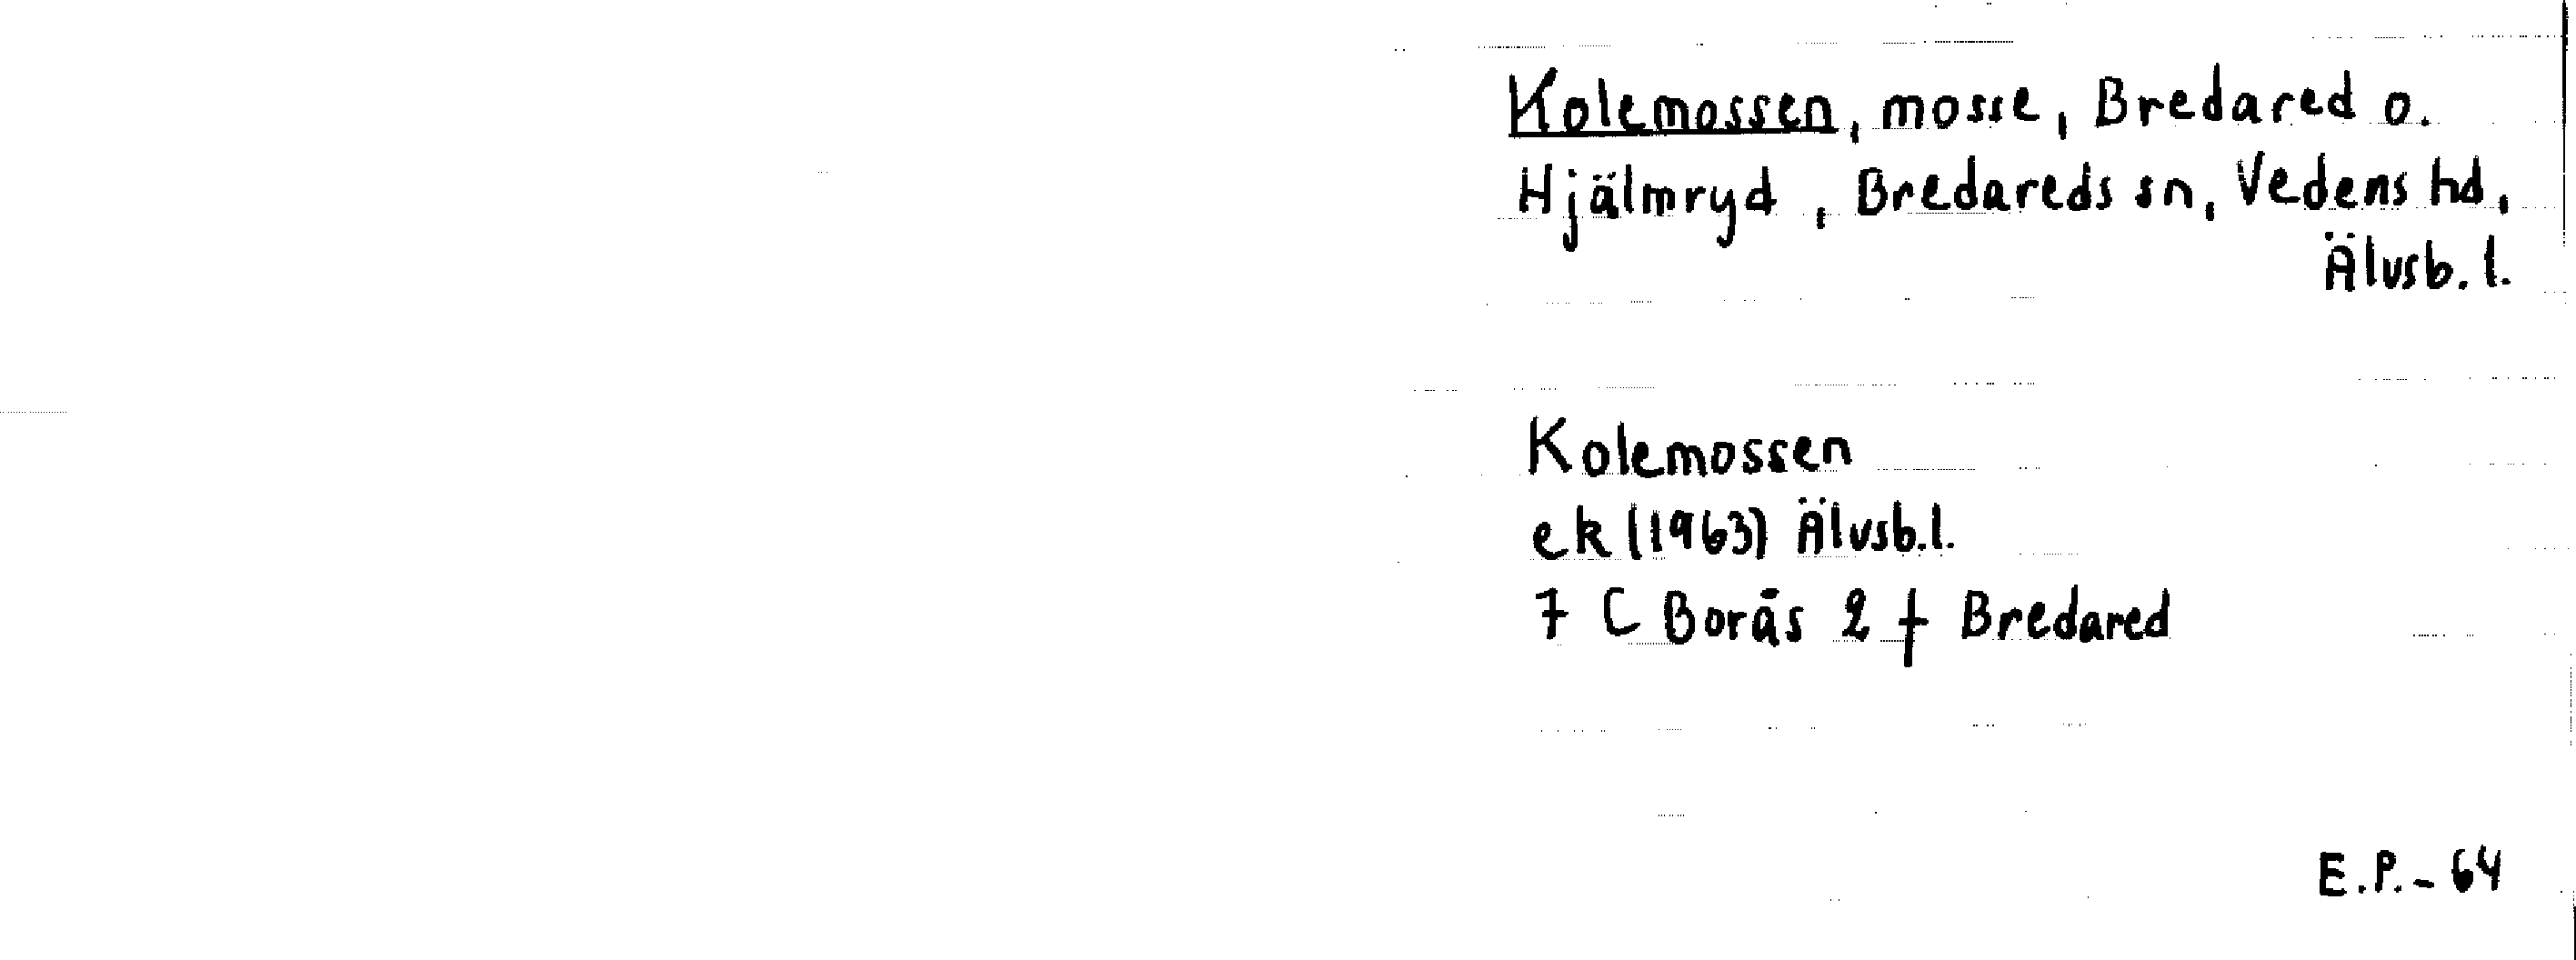 Kolemossen, mosse, Bredared o.
Hjälmryd, Bredareds sn, Vedens hd,
Älvsb. l.
Kolemossen
ek (1963) Älvsb.l.
7 C Borås 2 f Bredared
E.P.-64